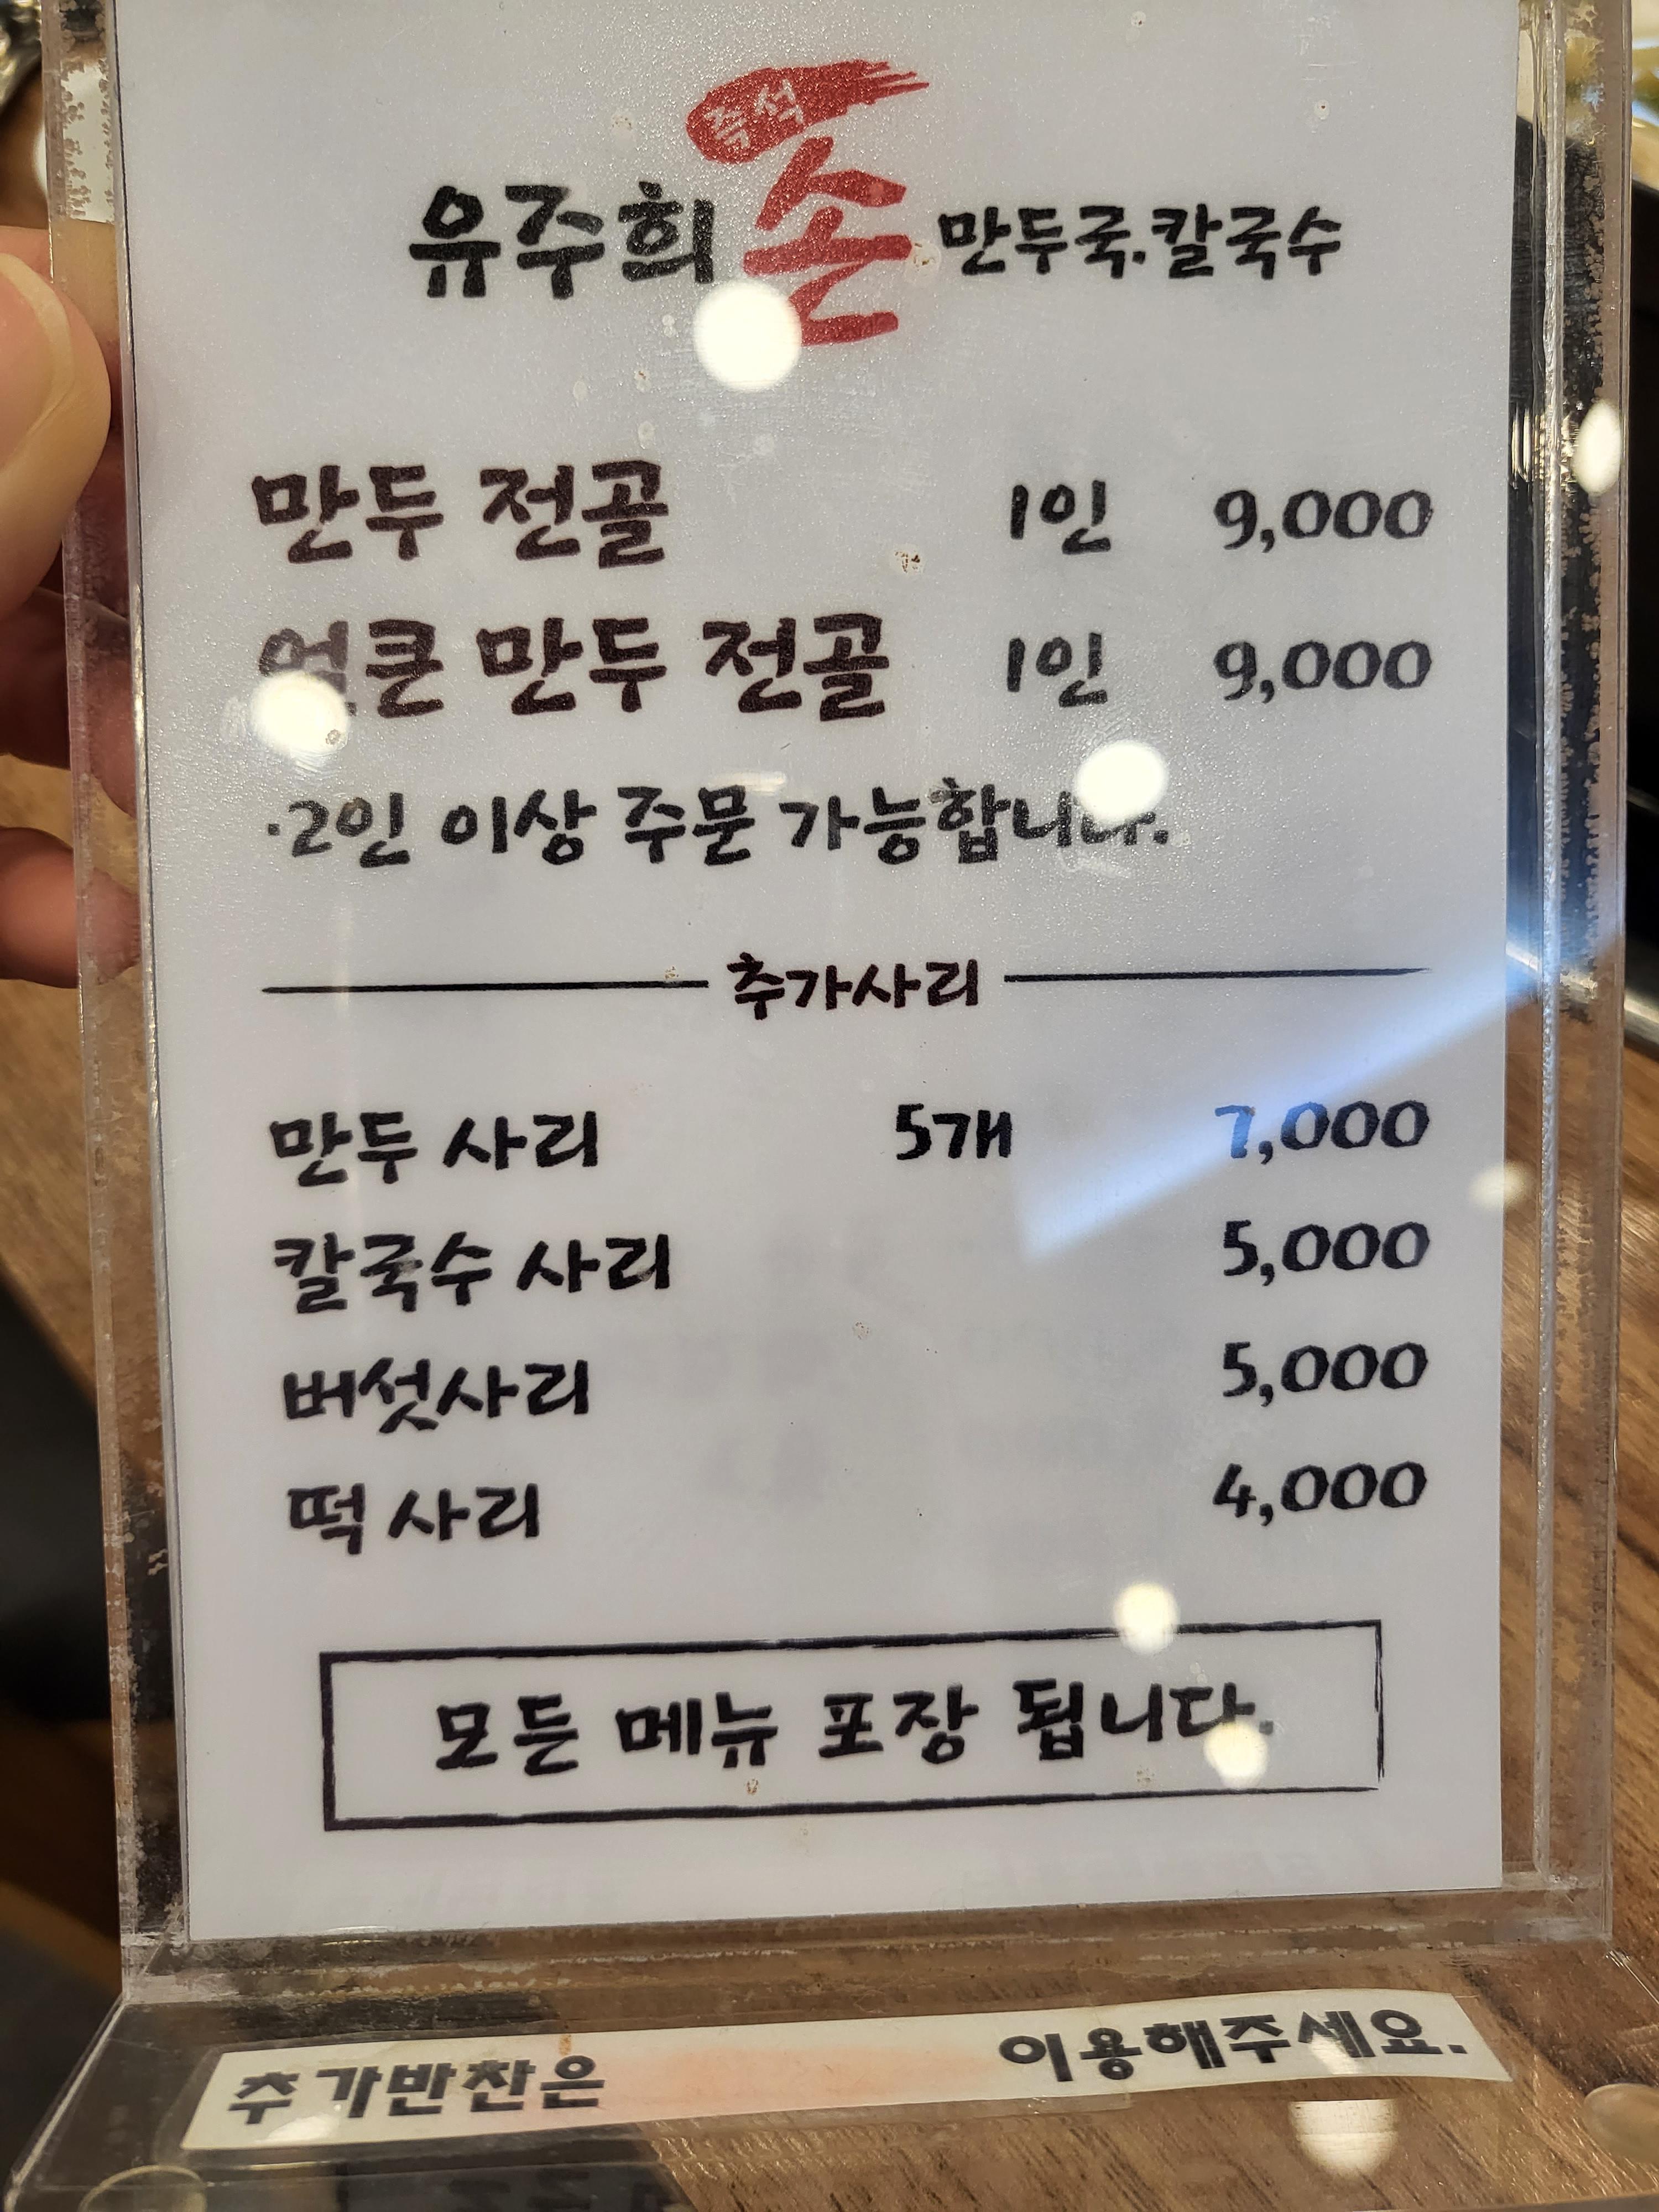 즉석
유주희 손 만두국.칼국수
만두 전골 1인 9,000
얼큰 만두 전골 1인 9,000
·2인 이상 주문 가능합니다.
추가사리
만두 사리 5개 7,000
칼국수 사리 5,000
버섯사리 5,000
떡 사리 4,000
모든 메뉴 포장 됩니다.
추가반찬은 이용해주세요.